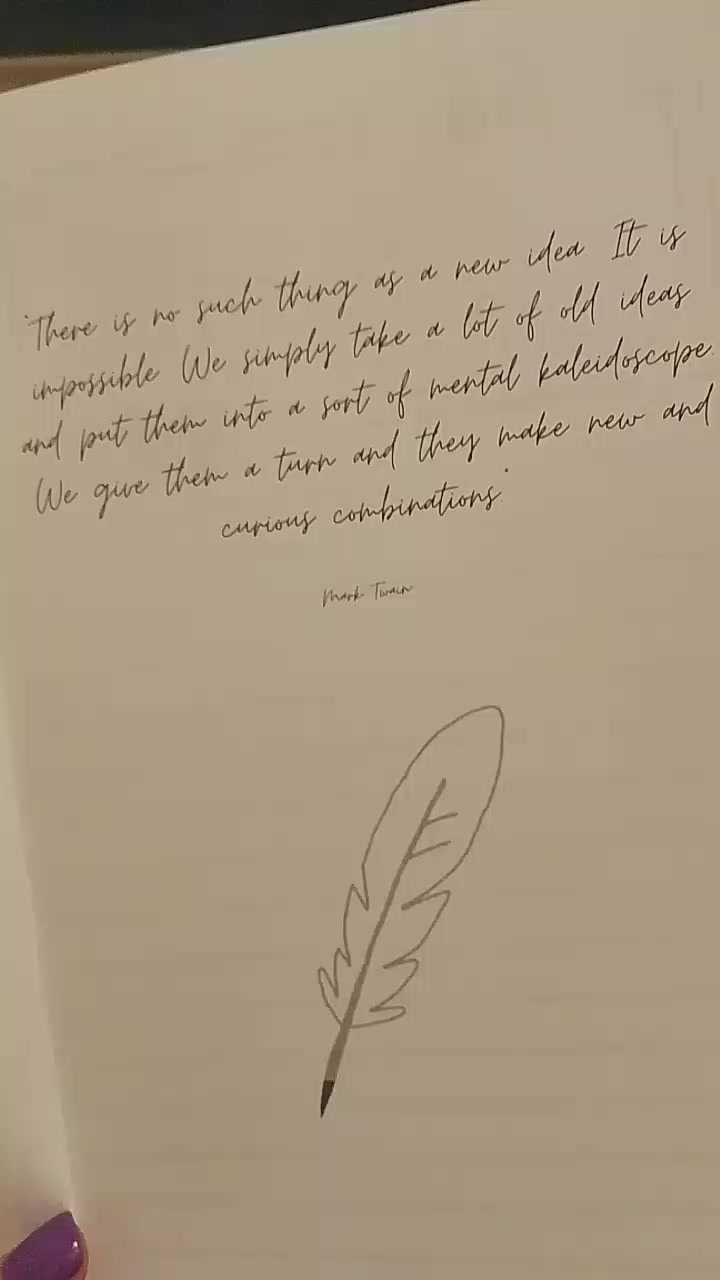 "There is no such thing as a new idea It is
impossible We simply take a lot of old ideas
and put them into a sort of mental kaleidoscope.
We give them a turn and they make new and
curious combinations"
Mark Twain